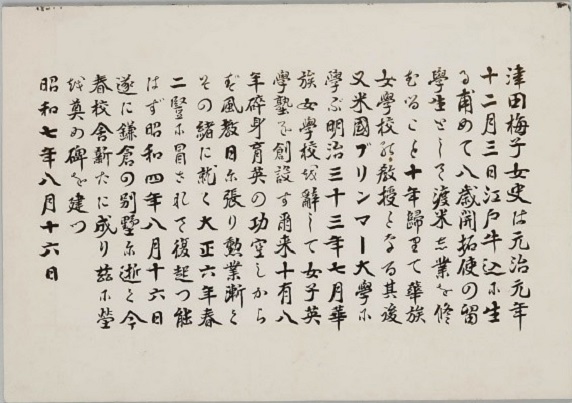 津田梅子女史は元治元年
十二月三日江戸牛込に生
る甫めて八歳開拓使の留
學生として渡米し業を修
むること十年歸りて華族
女學校の教授となる其後
又米國ブリンマー大學に
學ぶ明治三十三年七月華
族女學校を辭して女子英
學塾を創設す爾来十有八
年碎身育英の功空しから
ず風教日に張り勲業漸と
その緒に就く大正六年春
二豎に冒されて復起つ能
はず昭和四年八月十六日
遂に鎌倉の別墅に逝と今
春校舎新たに成り茲に塋
域奠め碑を建つ
昭和七年八月十六日